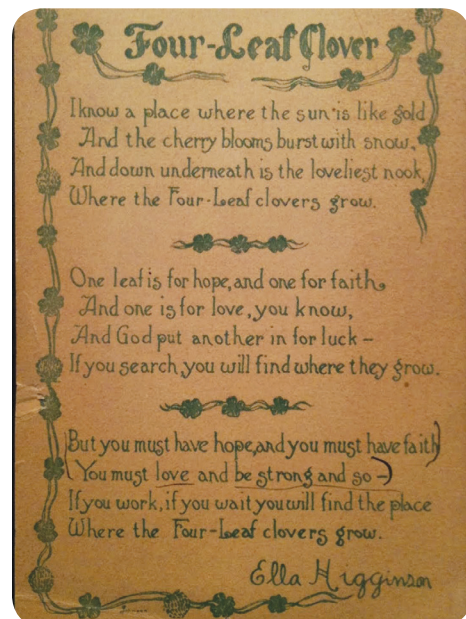 Four-Leaf Clover
I know a place where the sun is like gold
And the cherry blooms burst with snow,
And down underneath is the loveliest nook,
Where the Four-Leaf clovers grow.
One leaf is for hope, and one for faith,
And one is for love, you know,
And God put another in for luck –
If you search, you will find where they grow.
But you must have hope, and you must have faith
(You must love and be strong and so –)
If you work, if you wait you will find the place
Where the Four-Leaf clovers grow.
Ella Higginson